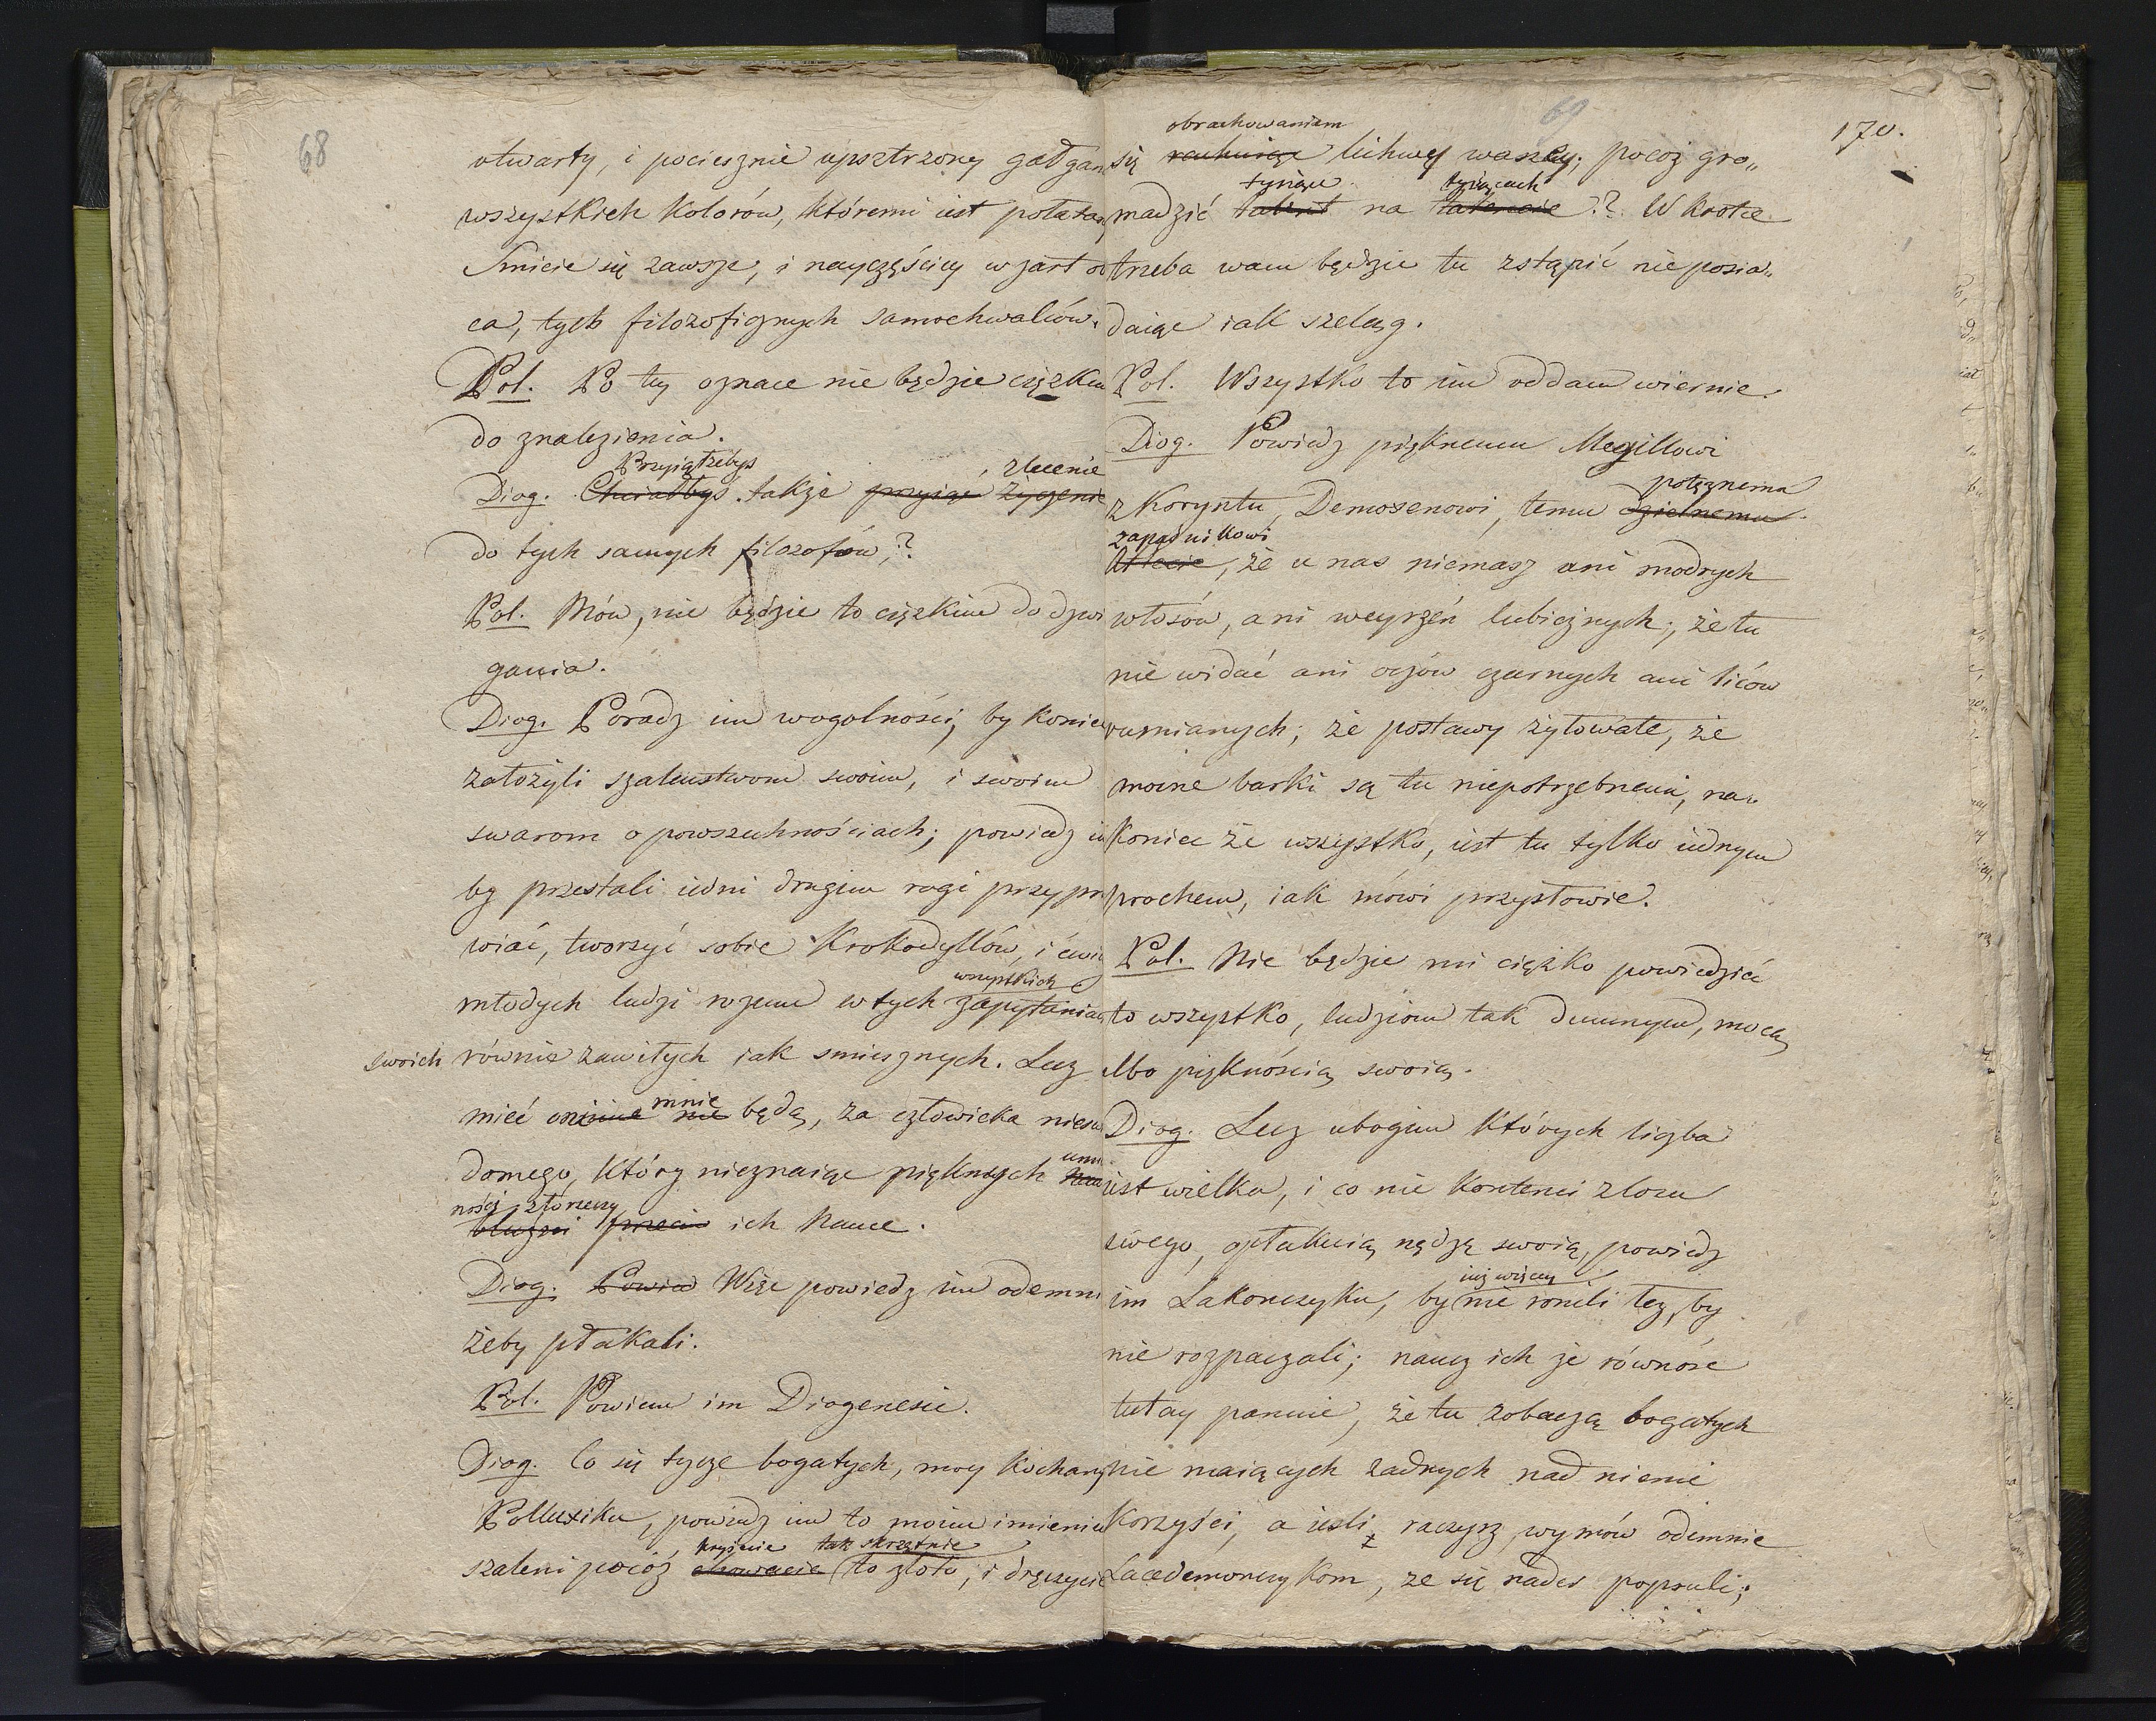 68
otwarty, i pociesznie upsztrzony gałgan
wszystkich kolorów, któremi iest połatan
Śmieie się zawsze, i nayczęściey w żart ob
ca, tych filozoficznych samochwalców.
Pol. Po tey oznace nie będzie ciężkim
do znalezienia.
Przyiąłżebyś zlecenie
Diog. Chciałbyś także przyiąć życzenie
do tych samych filozofów,?
Pol. Mów, nie będzie to ciężkim do dzwi
gania.
Diog. Poradz im wogolności, by koniec
założyli szaleństwom swoim, i swoim
swarom o powszechnościach; powiedz im
by przestali iedni drugim rogi przypra
wiać, tworzyć sobie Krokodyllów, i ćwi
wszystkich
młodych ludzi rozum w tych zapytaniach
swoich równie zawiłych iak smiesznych. Lecz
mnie
mieć nie będą, za człowieka niewia
umie
domego, który nieznaiąc pięknych nau
ności, złorzeczy
bluzni przeciw ich nauce.
Diog. Powied Więc powiedz im odemni
żeby płakali.
Pol. Powiem im Diogenesie.
Diog. Co się tycze bogatych, moy kochany
Polluxiku, powiedz im to moim imieniem
kryiecie tak skrzętnie
szaleni pocóż chowacie to złoto, i dręczycie
69
170.
obrachowaniem
się rachuiąc lichwy waszey; pocóż gro„
tysiące tysiącach
madzić talent na talencie?? W krotce
trzeba wam będzie tu zstąpić nie posia„
daiąc iak szeląg.
Pol. Wszystko to im oddam wiernie.
Diog. Powiedz pięknemu Megillowi
potężnemu
z Koryntu, Demoxenowi, temu dzielnemu
zapaśnikowi
Atlecie, że u nas niemasz ani modrych
włosów, ani weyrzeń lubieżnych; że tu
nie widać ani oczów czarnych ani liców
rumianych; że postawy żyłowate, że
mocne barki są tu niepotrzebnemi, na„
koniec że wszystko, iest tu tylko iednym
prochem, iak mówi przysłowie.
Pol. Nie będzie mi ciężko powiedzieć
to wszystko, ludziom tak dumnym, mocą
albo pięknością swoią.
Diog. Lecz ubogim których liczba
iest wielka, i co nie kontenci z losu
swego, opłakuią nędzę swoią, powiedz
iuż więcey
im Lakonczyku, by nie ronili łez, by
nie rozpaczali; naucz ich że równość
tutay panuie, że tu zobaczą bogatych
nie maiących żadnych nad niemi
korzyści, a iesli raczysz wymów odemnie
Lacedemonczykom, że się nader popsuli;